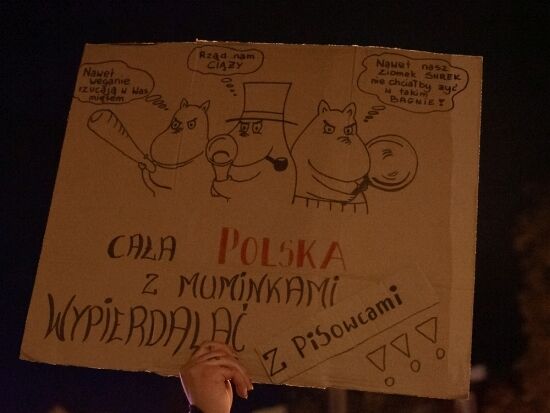 Nawet
weganie
rzucają w Was
mięsem
Rząd nam
CIĄŻY
Nawet nasz
ziomek SHREK
nie chciałby żyć
w takim
BAGNIE!
CAŁA POLSKA
Z MUMINKAMI
WYPIERDALAĆ
Z PiSowcami
!!!